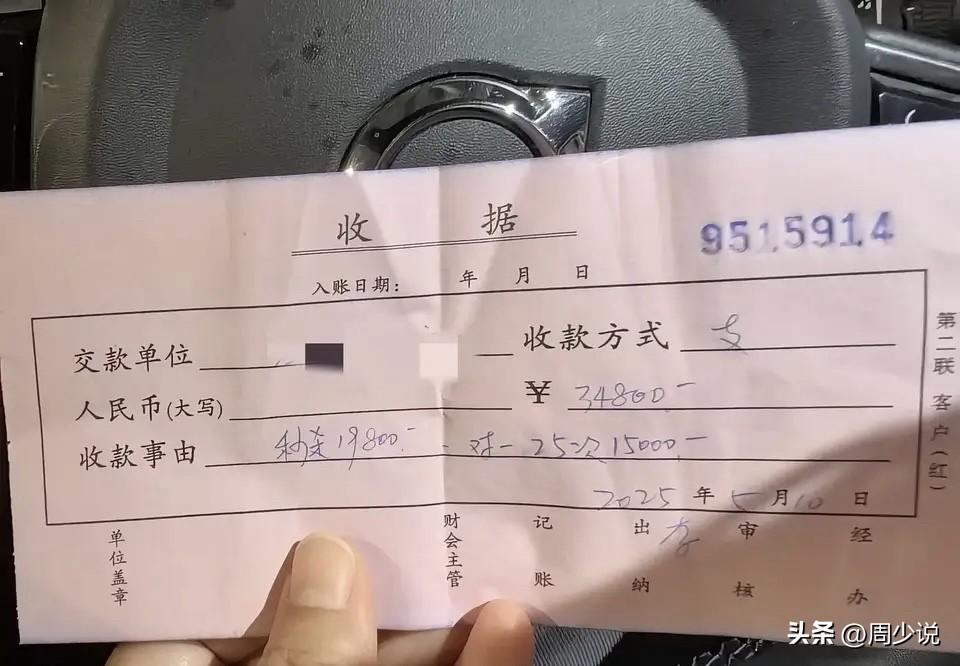 收 据
9515914
入账日期: 年 月 日
交款单位 收款方式 支
人民币(大写) ¥ 34800-
收款事由 秒杀19800- 一对一 25次15000-
2025年5月10日
单位盖章 财会主管 记账 出纳 审核 经办
第二联 客户(红)
头条 @周少说